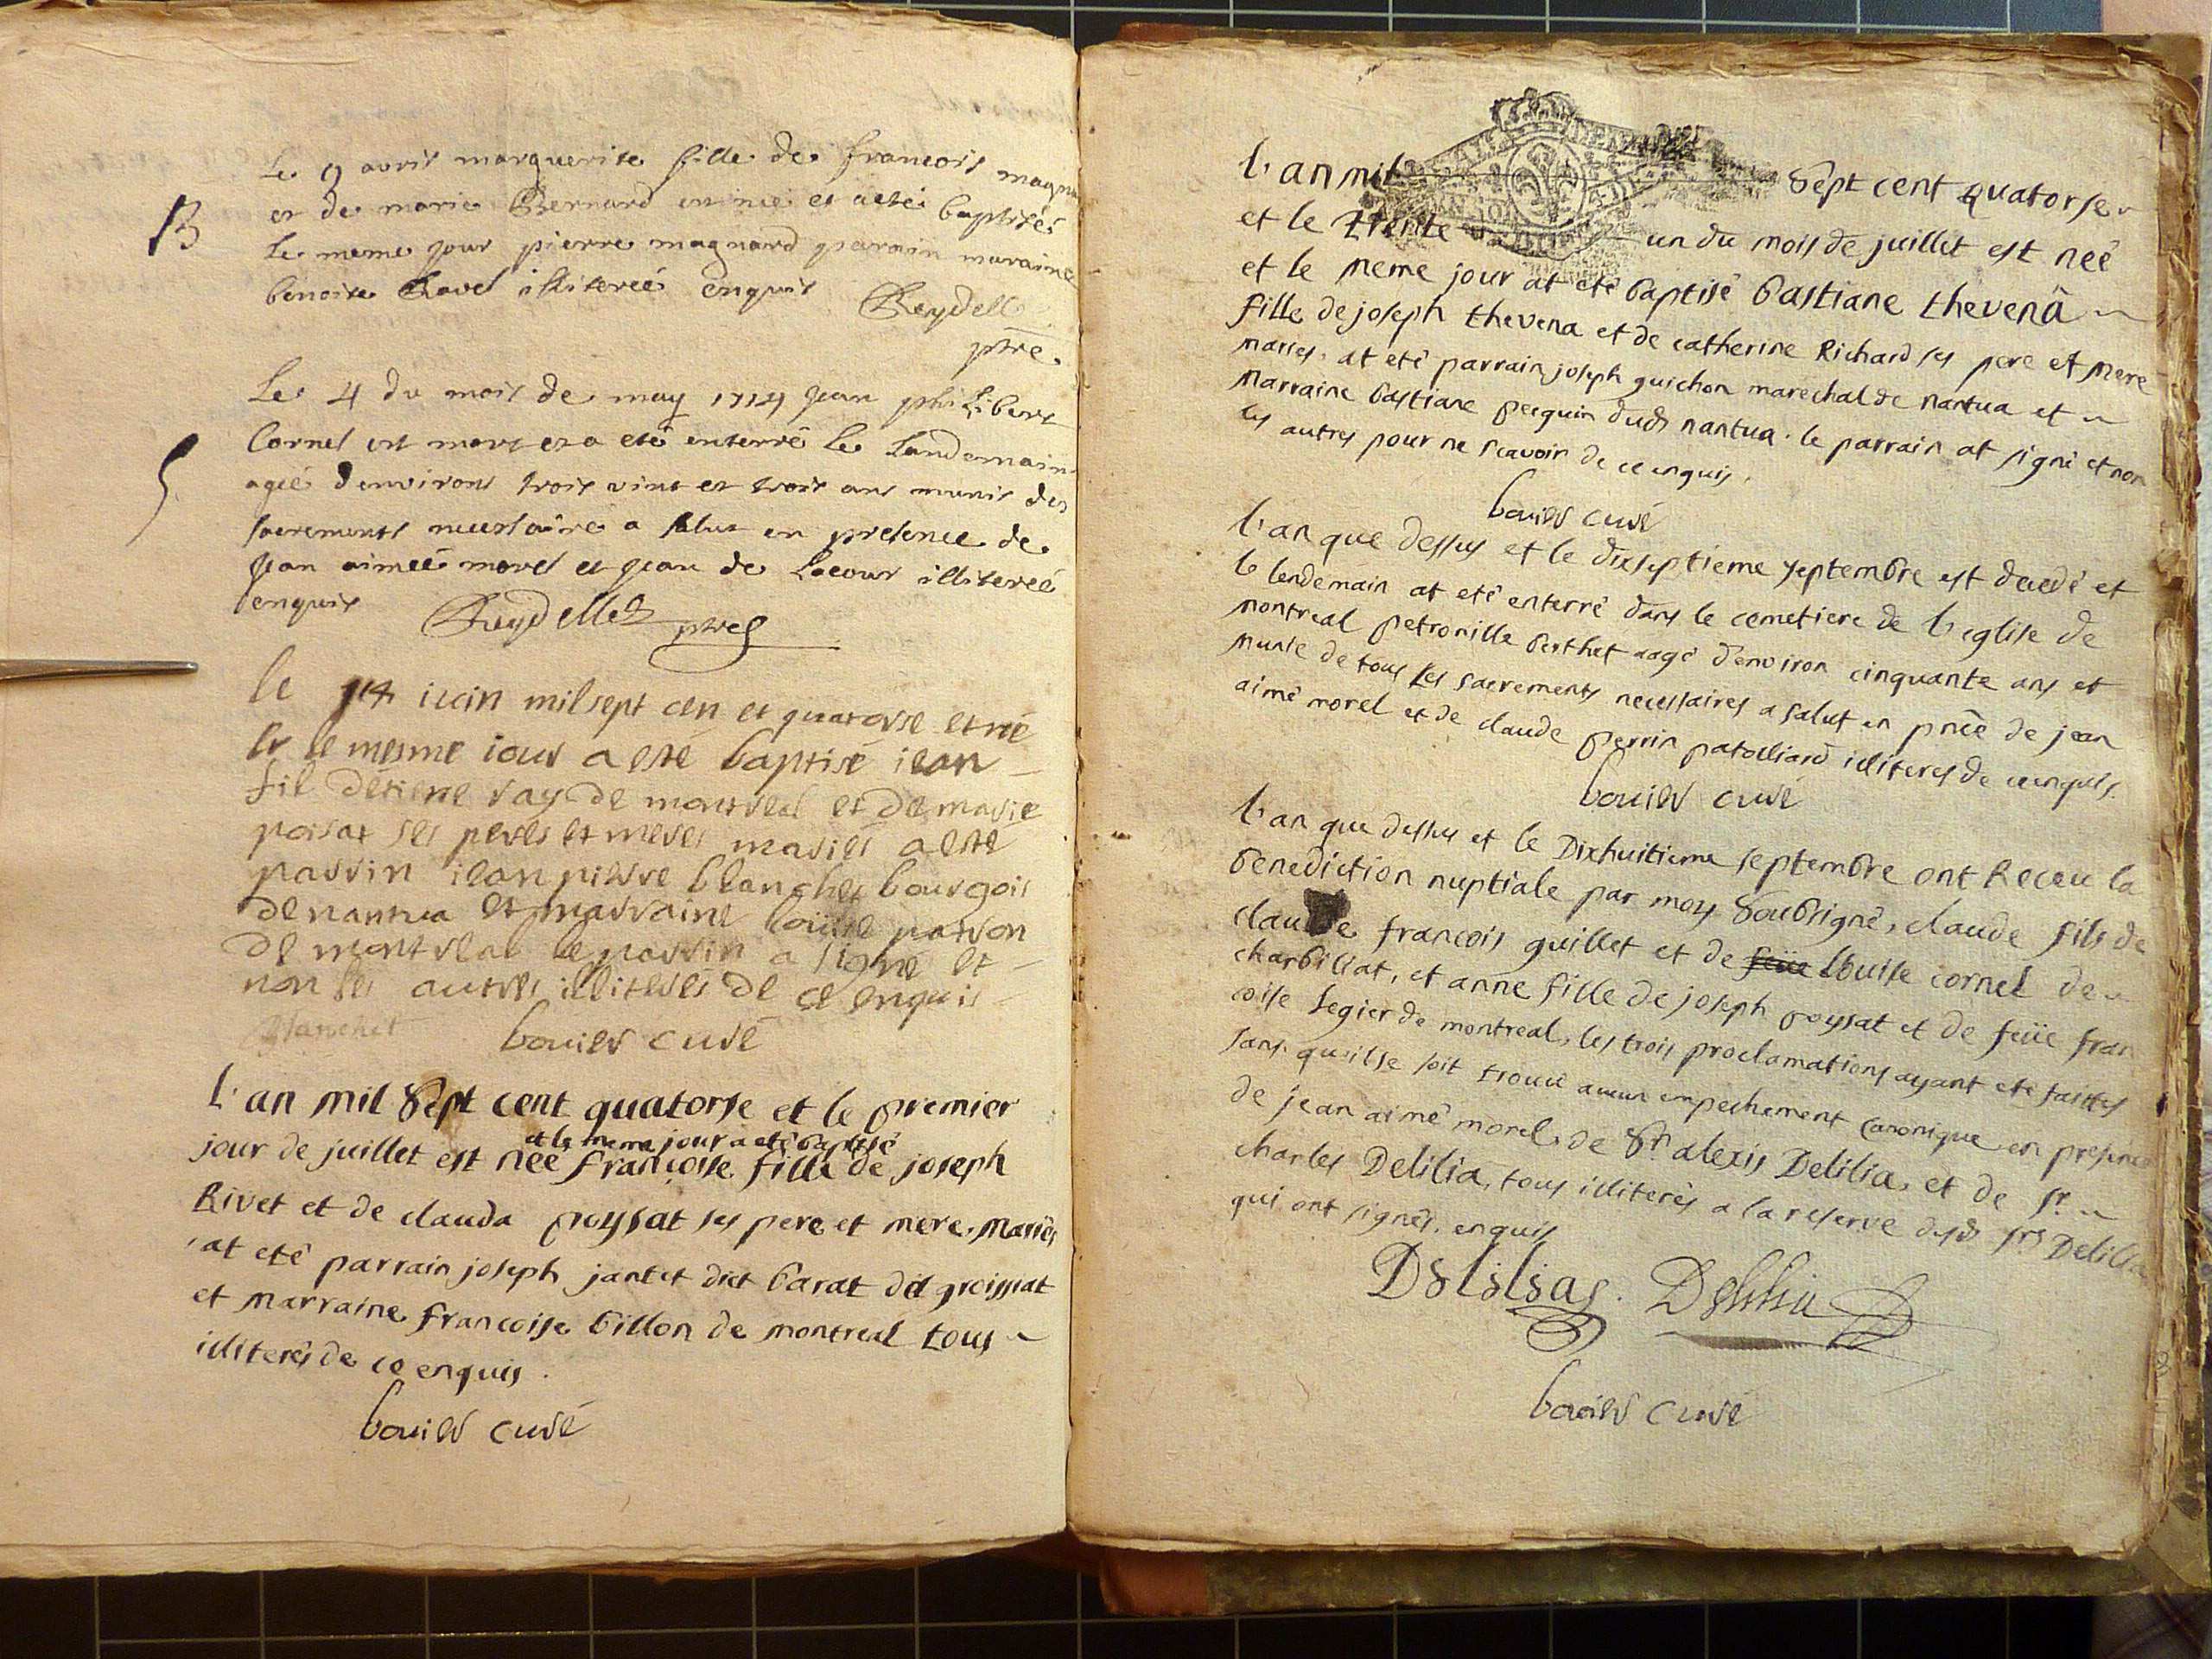 Le 9 avril marguerite fille de francois
et de marie Bernard est née et a été baptisée
Le meme jour pierre magnard parain maraine
B
benoite Ravel illiterée enquis
Reydellet
ptre
Le 4 du mois de may 1714 jean philibert
Cornel est mort et a eté enterré le Landemain
S
agié denvirons trois vint et trois ans munis des
sacrements necessaire a salut en presence de
Jean aimeé morel et jean de Lacour illitereé
enquis Reydellet ptre
le 14 iuin mil sept cen et quatorse et né
et le mesme iour a esté baptisé iean
fil détiene ray de montreal et de marie
poisat ses peres et meres mariés a esté
parrin iean pierre blanchet bourgois
de nantua et marraine loüise
de montreal le parrin a signé et
non les autres illiterés de ce enquis
blanchet bouier curé
l'an mil sept cent quatorse et le premier
et le meme jour a eté baptisé
jour de juillet est née françoise fille de joseph
Rivet et de clauda poysat ses pere et mere, mariés
at eté parrain joseph jantet dict barat de groissiat
et marraine francoise billon de montreal tous
illiterés de ce enquis.
bouier curé
l'an mil sept cent quatorse
et le trente un du mois de juillet est née
et le meme jour at eté baptisé bastiane thevenâ
fille de joseph thevena et de catherine Richard ses pere et mere
mariés. at eté parrain joseph guichon marechal de nantua et
marraine bastiane peiquin dud nantua. le parrain at signé et non
les autres pour ne scavoir de ce enquis.
bouier curé
l'an que dessus et le dixseptieme septembre est decedé et
le lendemain at eté enterré dans le cemetiere de l'eglise de
montreal petronille berthet aagé d'environ cinquante ans et
munie de tous les sacrements necessaires a salut en pnce de jean
aimé morel et de claude perrin patolliard illiteres de ce enquis.
bouier curé
l'an que dessus et le Dixhuitieme septembre ont Receu la
benediction nuptiale par moy soubsigné, claude fils de
claude francois guillet et de feüe louise cornel de
charbillat, et anne fille de joseph poysat et de feüe fran
coise Legier de montreal, les trois proclamations ayant eté faittes
sans qu'il se soit trouvé aucun empechement canonique en presence
de jean aimé morel, de Sr alexis Delilia, et de Sr
charles Delilia, tous illiterés a la reserve desd srs Delilia
qui ont signés. enquis
Delilias. Delilia
bouier curé